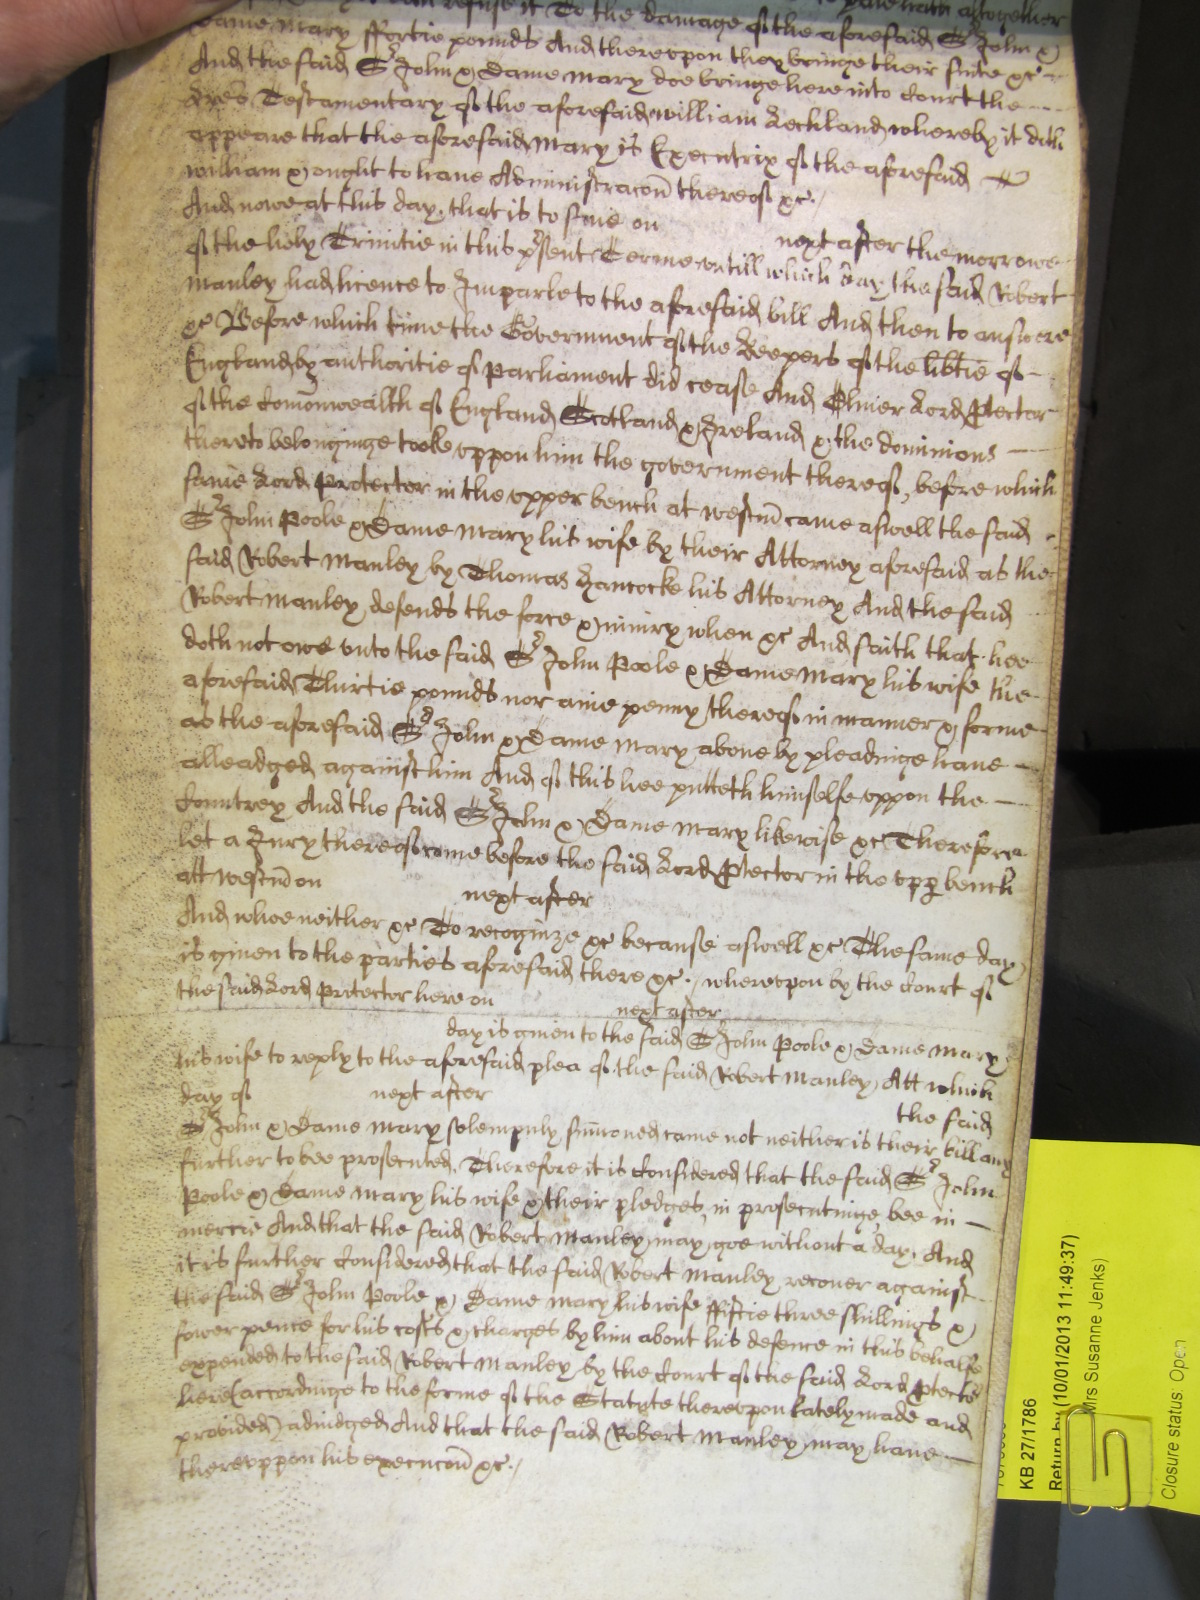 refuse it To the damage of the aforesaid Sr John &
Dame Mary ffortie pounds And thereupon they bringe their suite &c
And the said Sr John & Dame Mary doe bringe here into Court the
Testamentary of the aforesaid William Leckland whereby it doth
appeare that the aforesaid Mary is Executrix of the aforesaid
William & ought to haue Administracon thereof &c.
And nowe at this day, that is to saie on next after the morrowe
of the holy Trinitie in this psent Terme untill which day the said Robert
Manley had licence to Imparle to the aforesaid bill And then to answere
&c Before which time the Government of the Keepers of the libtie of
England by authoritie of Parliament did cease And Oliuer Lord Ptector
of the Comonwealth of England Scotland & Ireland & the dominions
thereto belonginge tooke uppon him the government thereof, before which
same Lord Protector in the upper bench at Westm came aswell the said
Sr John Poole & Dame Mary his wife by their Attorney aforesaid as the
said Robert Manley by Thomas Hancocke his Attorney And the said
Robert Manley defends the force & iniury when &c And saith that hee
doth not owe unto the said Sr John Poole & Dame Mary his wife the
aforesaid Thirtie pounds nor anie penny thereof in manner & forme
as the aforesaid Sr John & Dame Mary aboue by pleadinge haue
alleadged against him And of this hee putteth himselfe uppon the
Countrey And the said Sr John & Dame Mary likewise &c Therefore
let a Jury thereof come before the said Lord Ptector in the upp bench
att Westm on next after
And whoe neither &c To recognize &c because aswell &c The same day
is giuen to the parties aforesaid there &c. whereupon by the Court of
the said Lord Protector here on next after
day is giuen to the said Sr John Poole & Dame Mary
his wife to reply to the aforesaid plea of the said Robert Manley, Att which
day of next after the said
Sr John & Dame Mary solempnly sumoned came not neither is their bill any
further to bee prosecuted, Therefore it is Considered that the said Sr John
Poole & Dame Mary his wife & their pledges, in prosecutinge, bee in
mercie And that the said Robert Manley may goe without a day, And
it is further Considered that the said Robert Manley recouer against
the said Sr John Poole & Dame Mary his wife ffiftie three shillings &
fower pence for his costs & charges by him about his defence in this behalfe
expended to the said Robert Manley by the Court of the said Lord Ptector
here (accordinge to the forme of the Statute thereupon lately made and
provided) adiudged And that the said Robert Manley may haue
thereuppon his execucon &c.
KB 27/1786
Return by (10/01/2013 11:49:37)
Mrs Susanne Jenks)
Closure status: Open